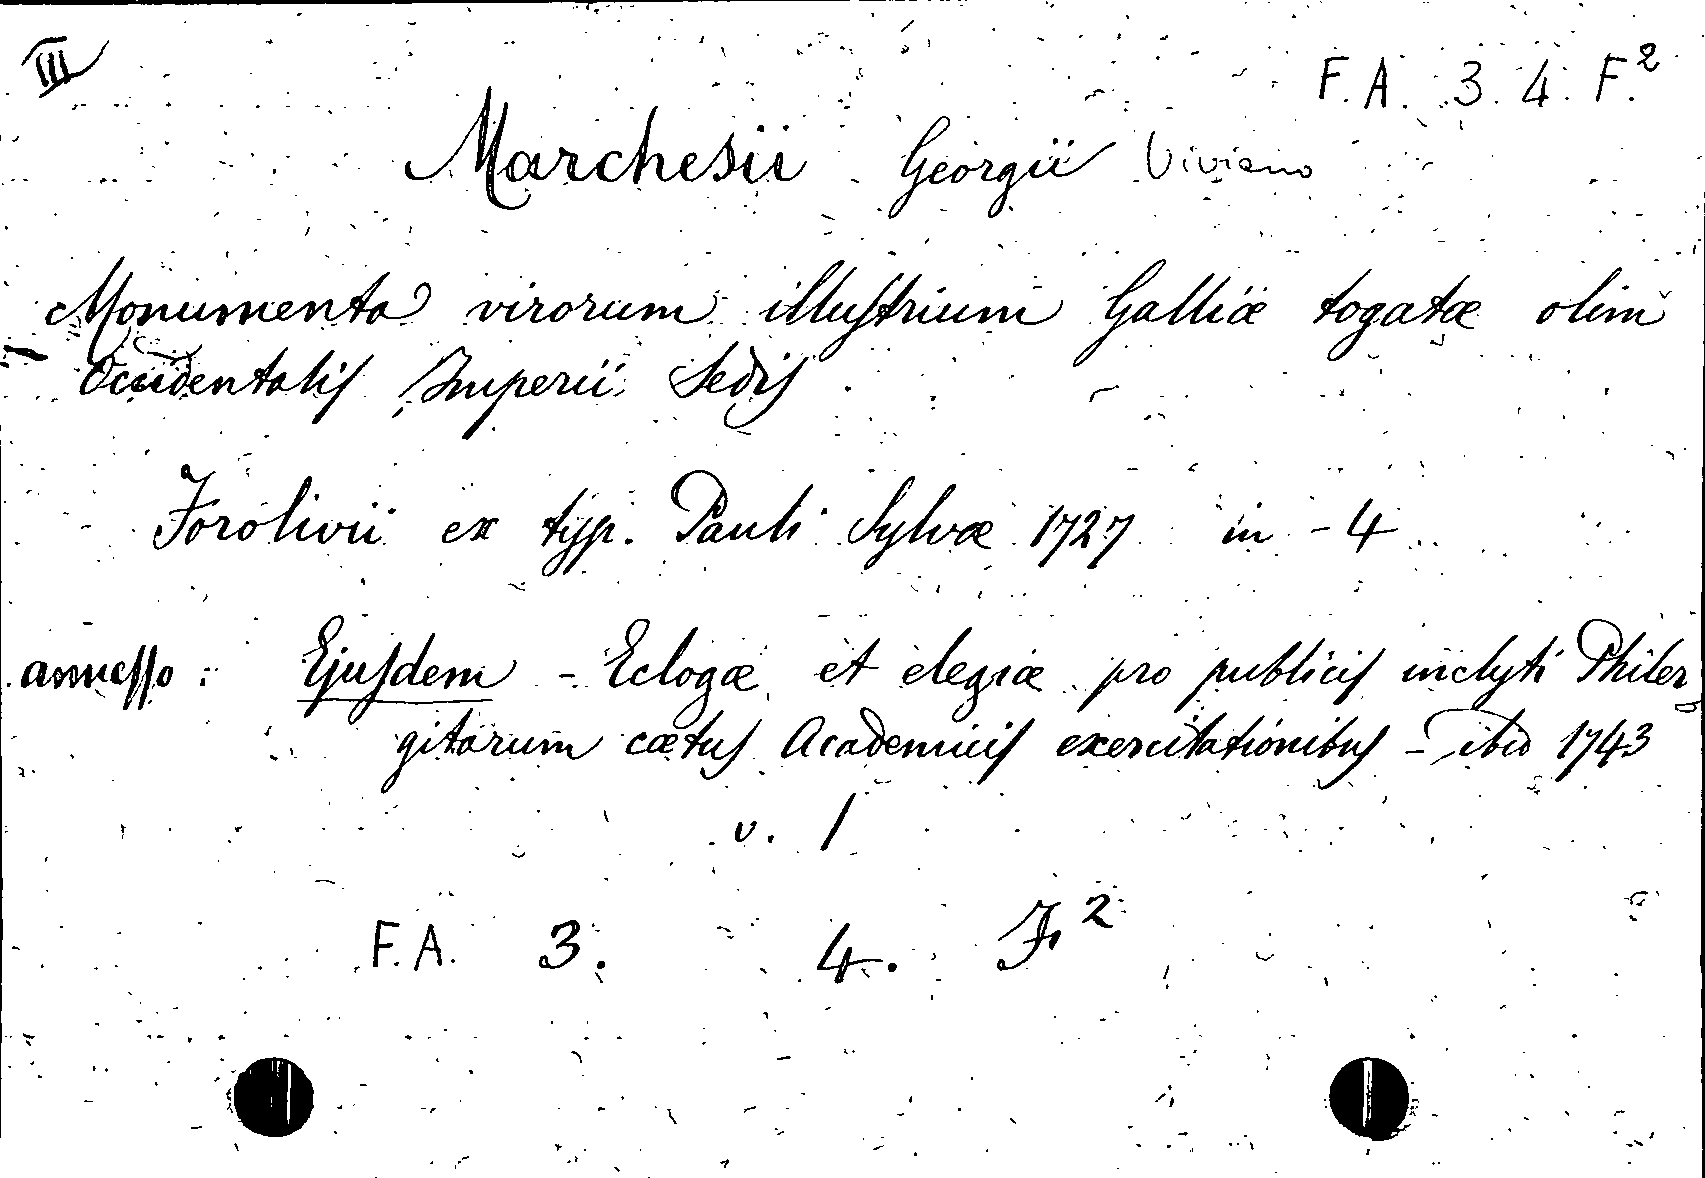 III
F. A. 3. 4. F.²
Marchesii Georgii Viviano
Monumenta virorum illustrium Galliæ togatæ olim
Occidentalis Imperii Sedis
Forolivii ex typ. Pauli Sylvæ 1727 in - 4
annesso: Ejusdem - Eclogæ et elegiæ pro publicis inclyti Philer
gitarum cætus Academicis exercitationibus - ibid 1743
v. 1
F. A. 3. 4. F.²